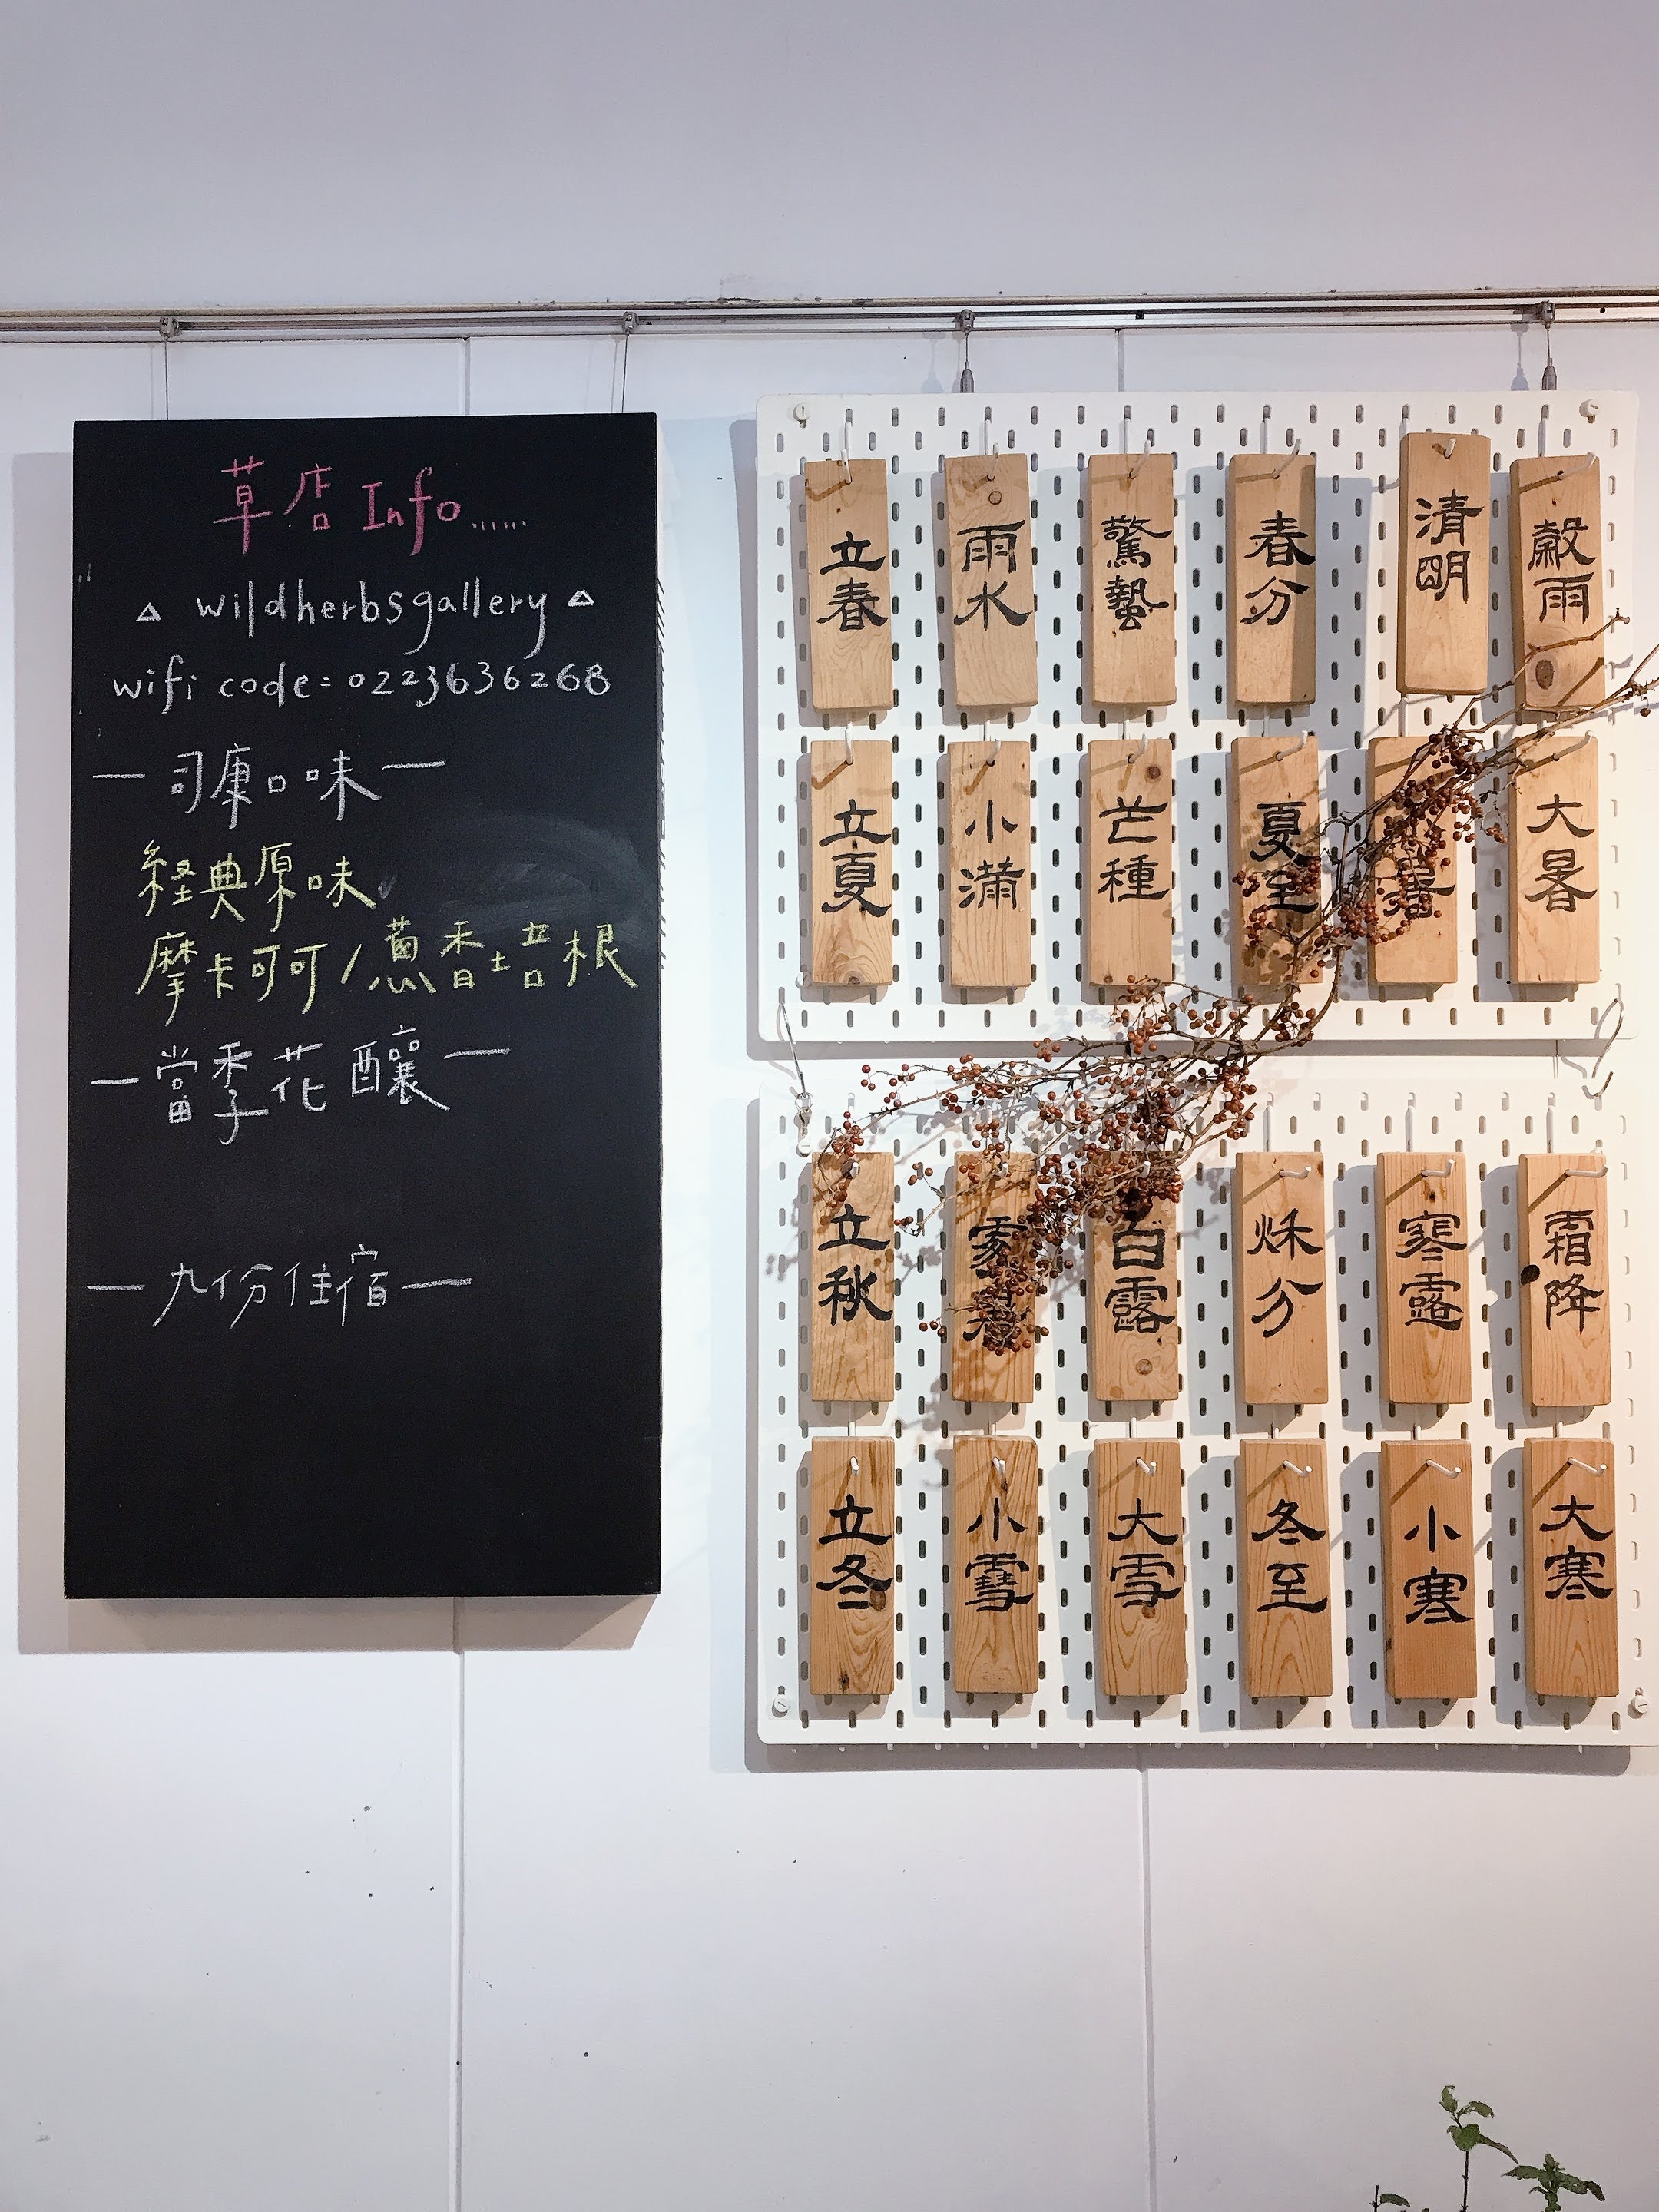 草店 Info......
△ wildherbsgallery △
wifi code = 0223636268
— 司康口味 —
経典原味
摩卡可可/蔥香培根
— 當季花釀 —
— 九份住宿 —
立春
雨水
驚蟄
春分
清明
穀雨
立夏
小滿
芒種
夏至
暑
大暑
立秋
處暑
白露
秋分
寒露
霜降
立冬
小雪
大雪
冬至
小寒
大寒